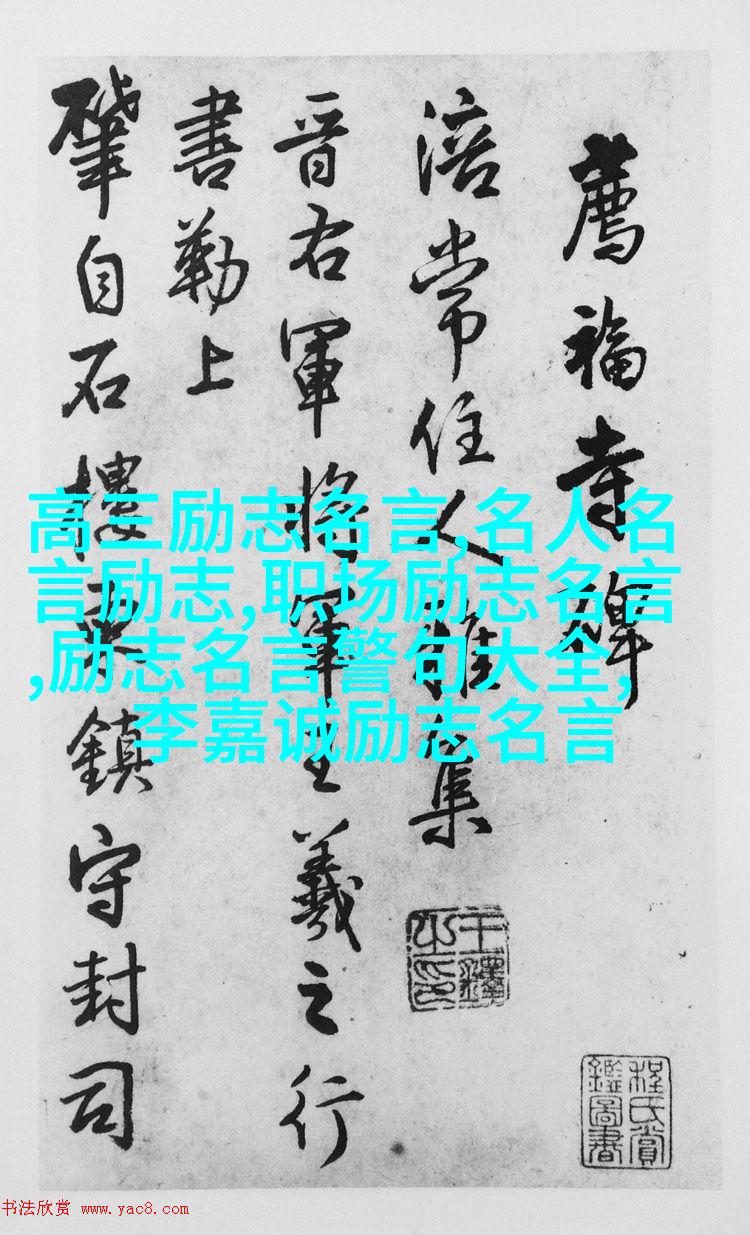 薦福寺碑
涪常住人雅集
晋右軍將軍王羲之行
書勒上
肇自石樓鎮守封司
高三励志名言,名人名
言励志,职场励志名言
,励志名言警句大全,
李嘉诚励志名言
王鐸之印
程氏賞鑑圖書
书法欣赏 www.yac8.com